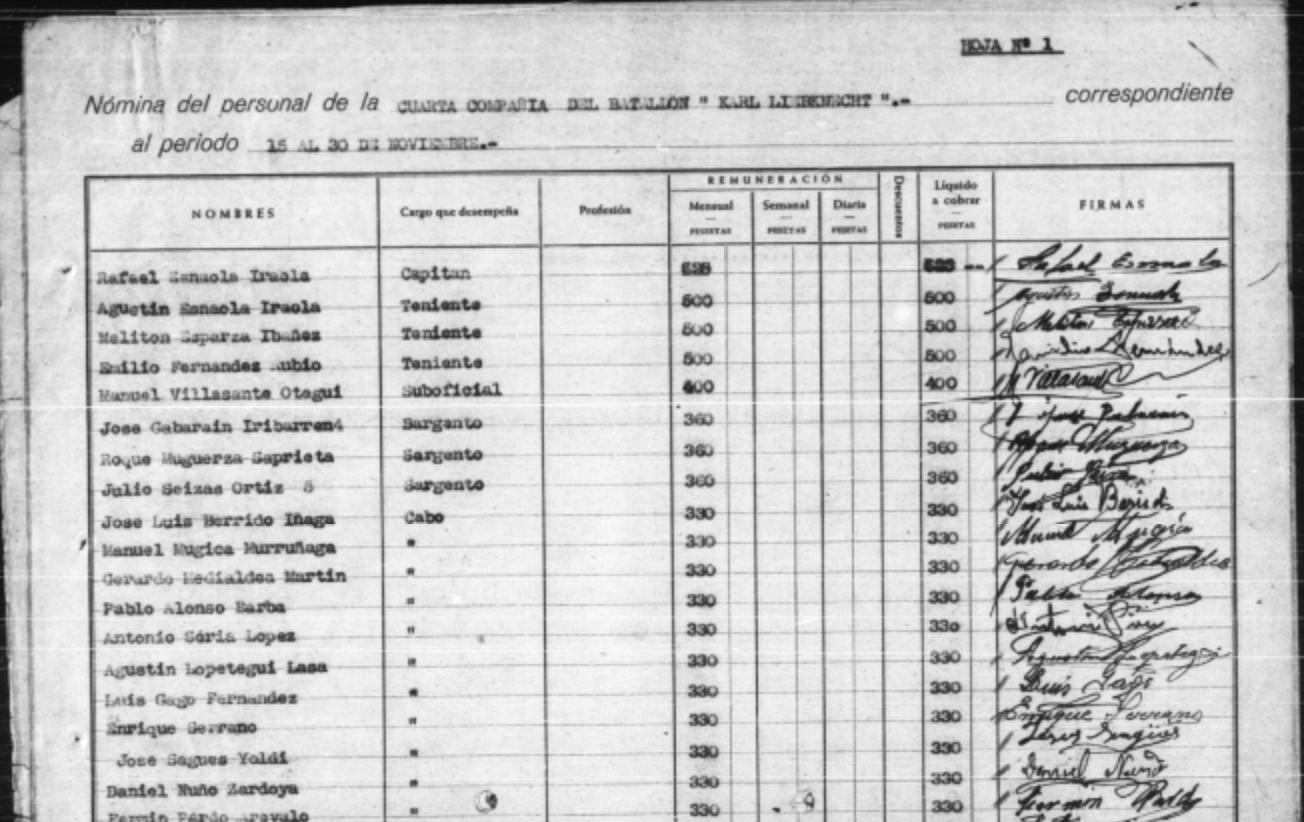 HOJA Nº 1
Nómina del personal de la CUARTA COMPAÑIA DEL BATALLON " KARL LIEBKNECHT ".- correspondiente
al periodo 15 AL 30 DE NOVIEMBRE.-
NOMBRES Cargo que desempeña Profesión REMUNERACIÓN Mensual PESETAS Semanal PESETAS Diaria PESETAS Descuentos Líquido a cobrar PESETAS FIRMAS
Rafael Esnaola Iraola Capitan Rafael Esnaola
Agustin Esnaola Iraola Teniente 500 500 Agustin Esnaola
Meliton Esparza Ibañez Teniente 500 500 Meliton Esparza
Emilio Fernandez Rubio Teniente 500 500
Manuel Villasante Otegui Suboficial 400 400 Villasante
Jose Gabarain Iribarren Sargento 360 360
Roque Muguerza Saprieta Sargento 360 360 Roque Muguerza
Julio Seizas Ortiz Sargento 360 360 Julio
Jose Luis Berrido Iñaga Cabo 330 330 Jose Luis Berrido
Manuel Mugica Murruñaga " 330 330 Manuel Mugica
Gerardo Medialdea Martin " 330 330 Gerardo Medialdea
Pablo Alonso Barba " 330 330 Pablo Alonso
Antonio Soria Lopez " 330 330 Antonio
Agustin Lopetegui Lasa " 330 330 Agustin Lopetegui
Luis Gago Fernandez " 330 330 Luis Gago
Enrique Serrano " 330 330 Enrique Serrano
Jose Sagues Yoldi " 330 330
Daniel Nuño Zardoya " 330 330 Daniel Nuño
Fermin Pardo Arevalo " 330 330 Fermin Pardo